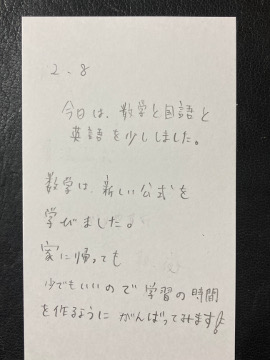 2.8
今日は、数学と国語と
英語を少ししました。
数学は、新しい公式を
学びました。
家に帰っても
少でもいいので学習の時間
を作るようにがんばってみます!